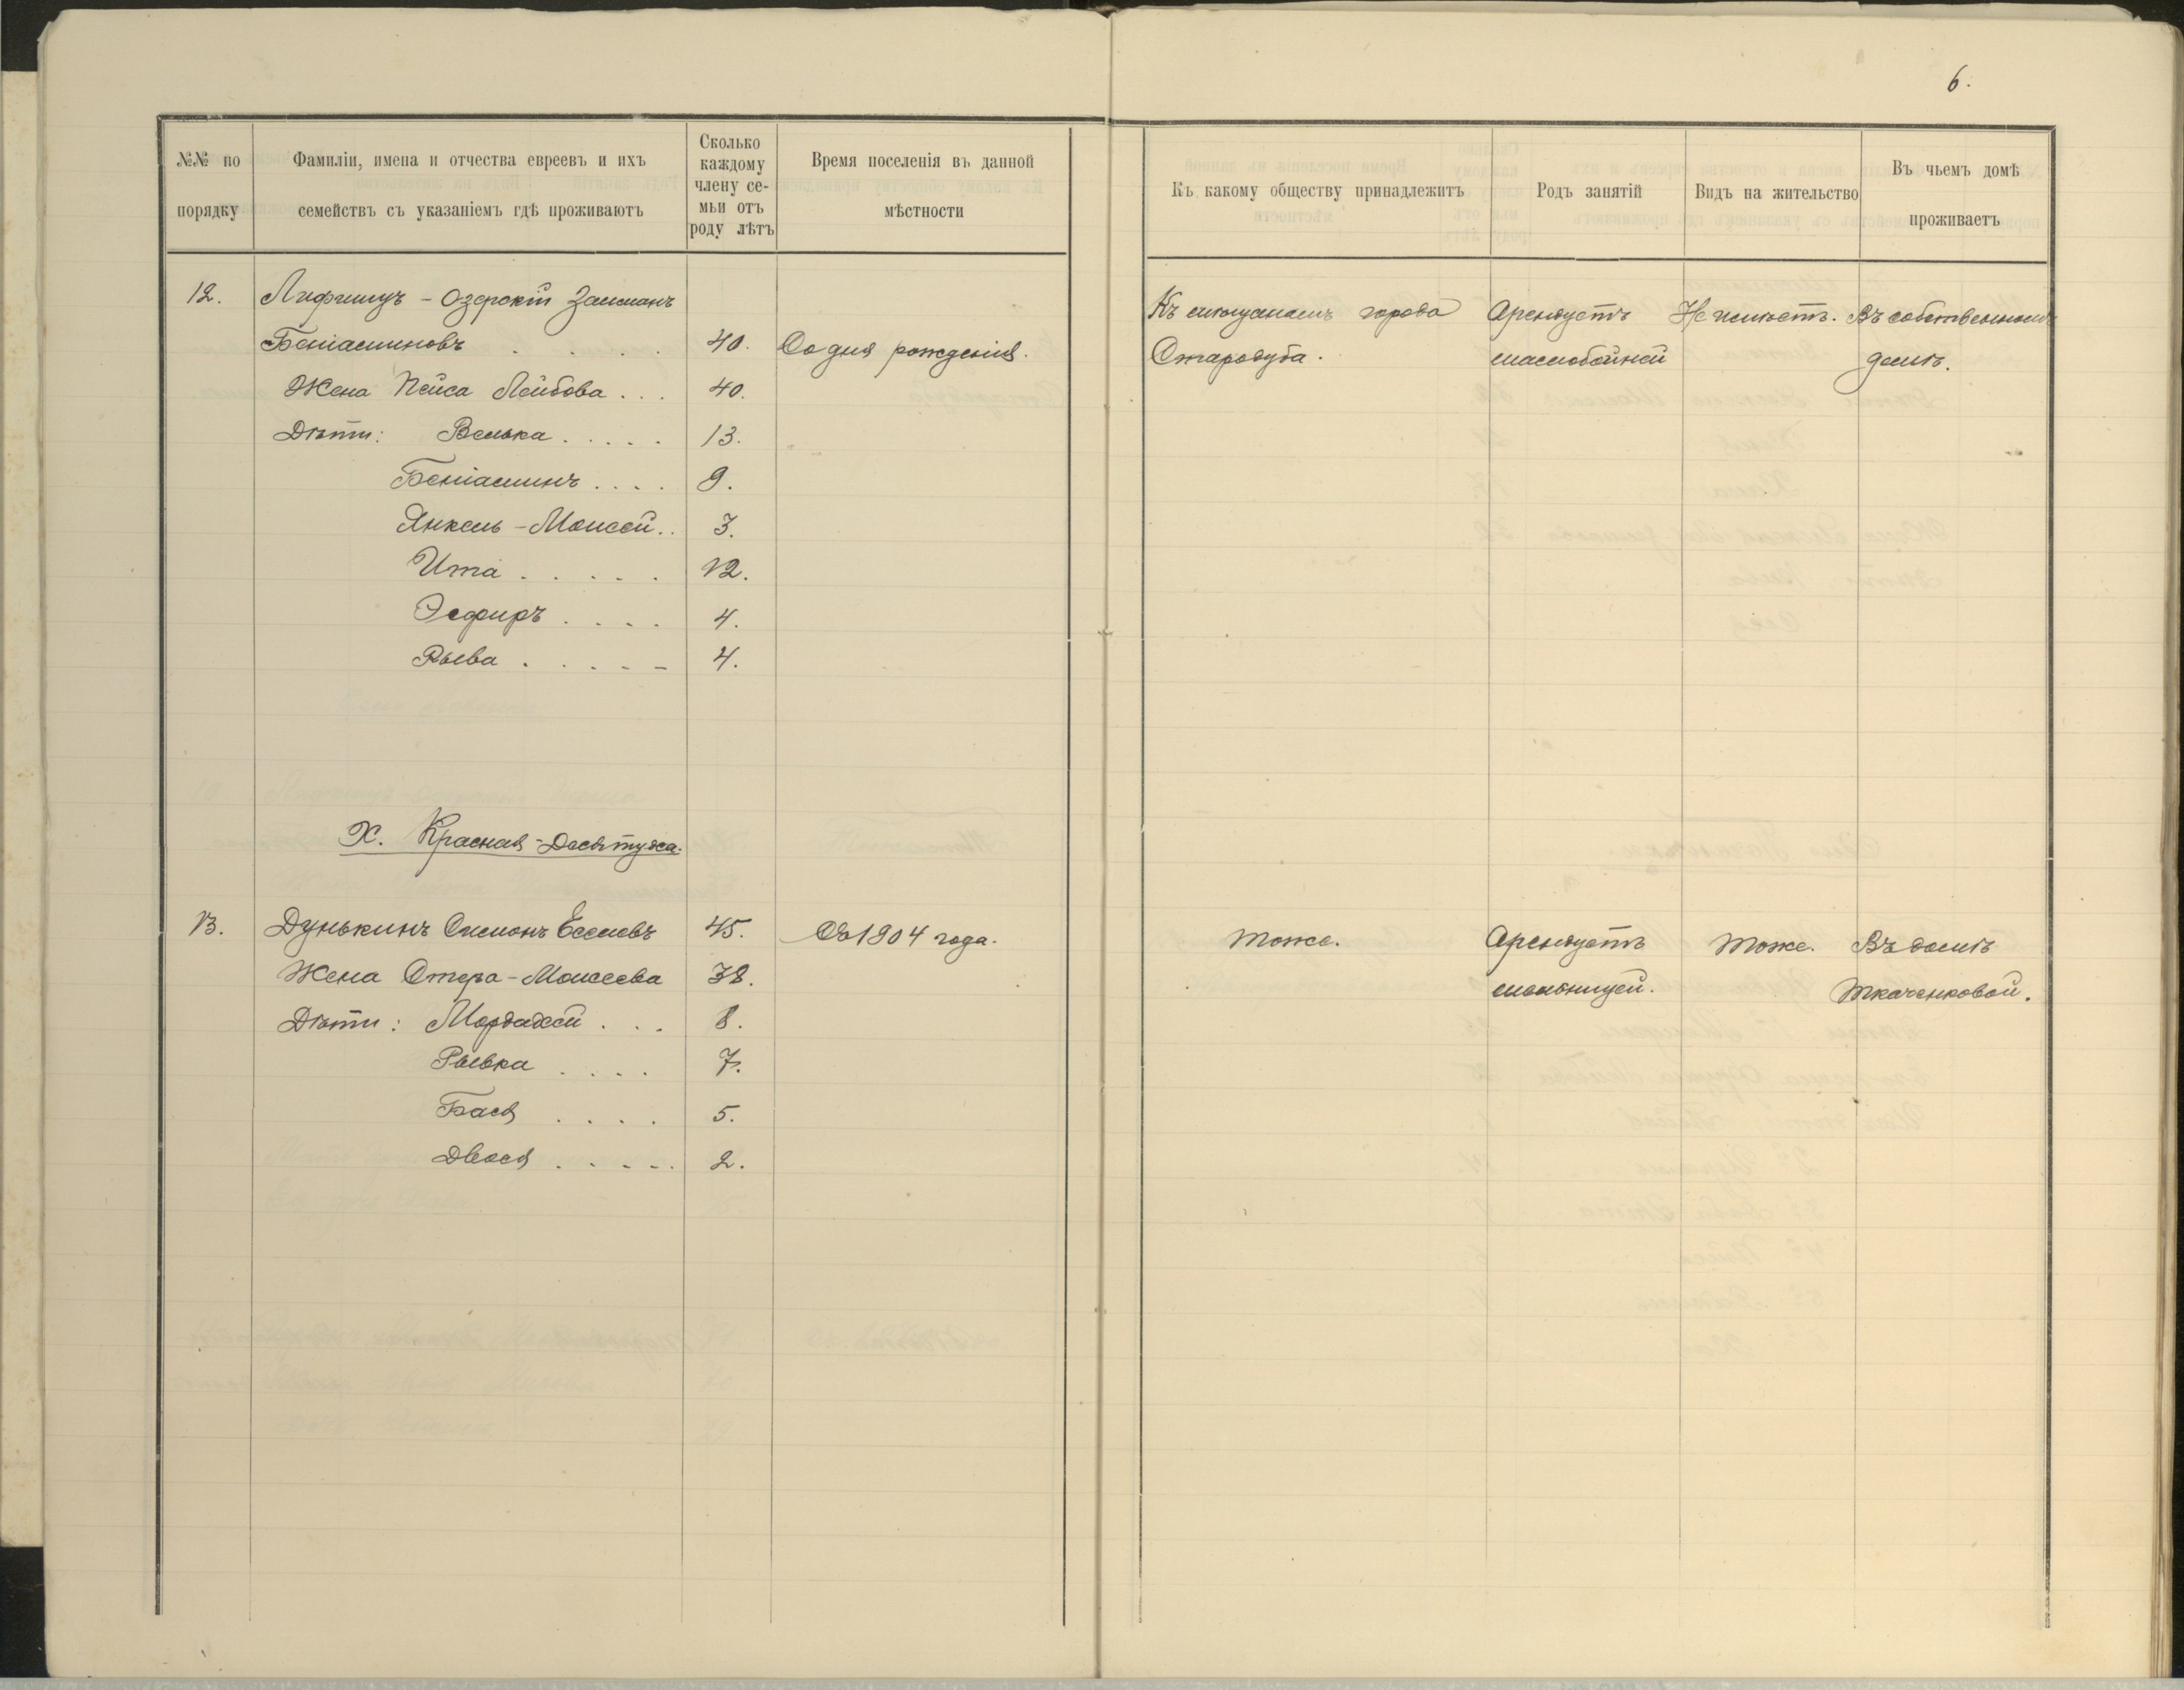 6.
№№ по
порядку
Фамиліи, имена и отчества евреевъ и ихъ
семействъ съ указаніемъ гдѣ проживаютъ
Сколько
каждому
члену се-
мьи отъ
роду лѣтъ
Время поселенія въ данной
мѣстности
Къ какому обществу принадлежитъ
Родъ занятій
Видъ на жительство
Въ чьемъ домѣ
проживаетъ
12. Лифшицъ - Озерскій Залманъ
Беніаминовъ . . . . 40. Со дня рожденія.
Къ мѣщанамъ города Арендуетъ Не имѣетъ. Въ собственномъ
Стародуба. маслобойней домѣ.
Жена Пейса Лейбова . . . 40.
Дѣти: Велька . . . . . 13.
Беніаминъ . . . . 9.
Янкель - Моисей . . 3.
Ита . . . . . 12.
Эсфиръ . . . . 4.
Рыва . . . . . 4.
Х. Красная - 
13. Дунькинъ Симонъ Еселевъ 45. Съ 1904 года.
тоже. Арендуетъ тоже. Въ домѣ
мельницей. Ткаченковой.
Жена Стера - Моисеева 38.
Дѣти: Мордахей . . . 8.
Рывка . . . . 7.
Бася . . . . 5.
Двося . . . . . 2.